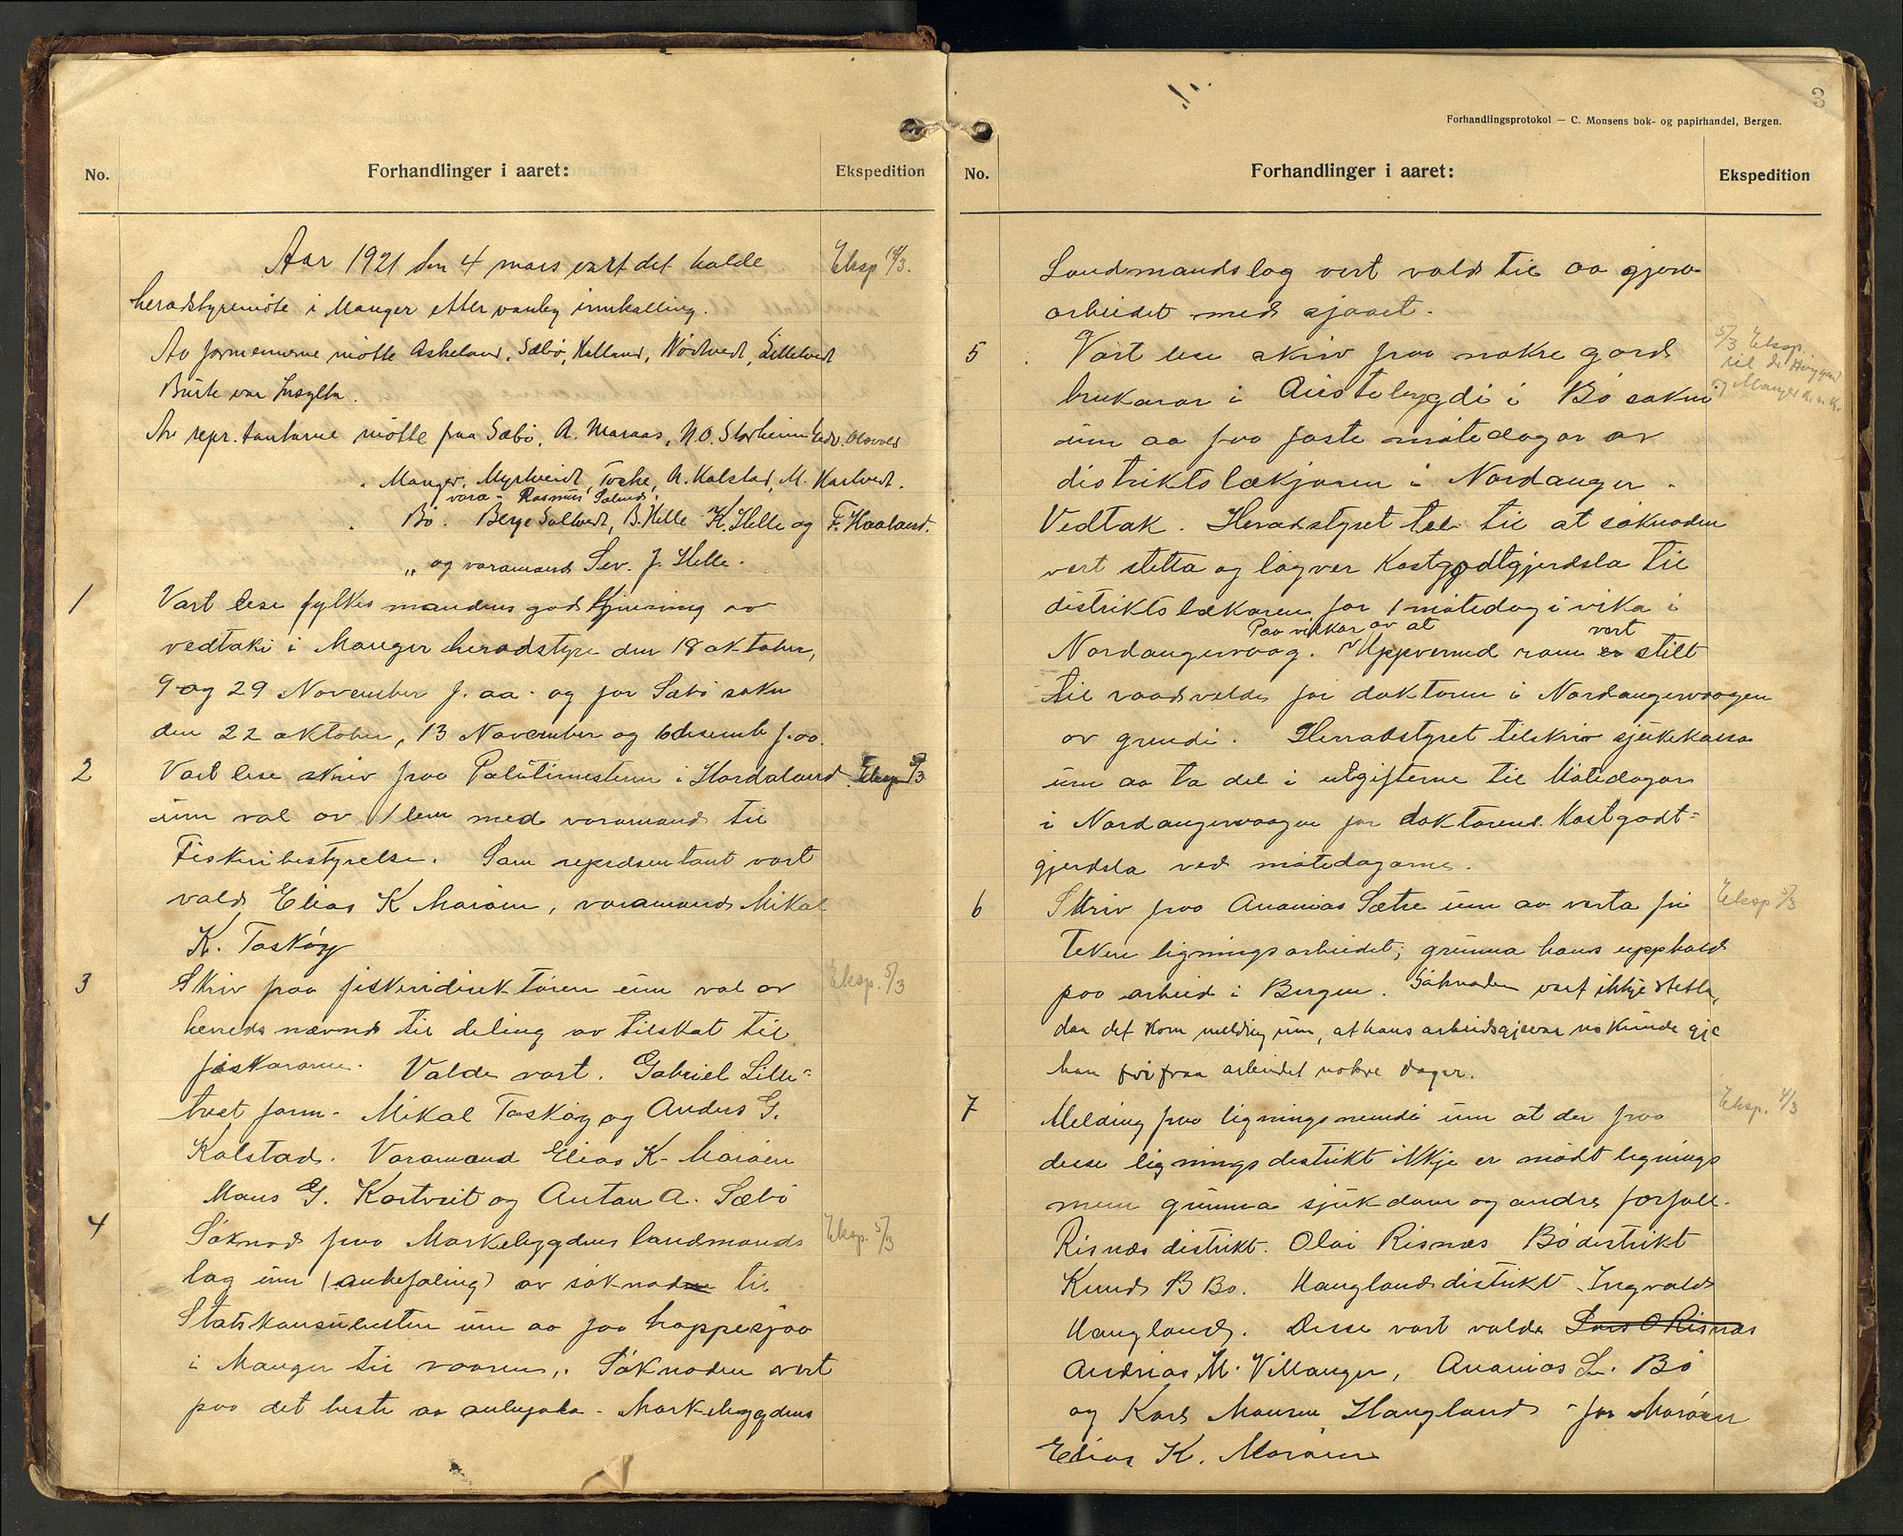 No.
Forhandlinger i aaret:
Ekspedition
Aar 1921 den 4 mars vart det halde
Eksp 14/3.
heradstyremöte i Manger etter vanleg innkalling.
Av formennerne mötte Askeland, Sæbö, Halland, Nödtvedt, Lilletvedt
var
Av repr.tantarne mötte fraa Sæbö, A. Maraas, N.O. Storheim Edv. Olsvold
Manger. Myrtveidt, Toske, A. Kalstad, M. Kartvedt.
vara - Rasmus
Bö. Berge Soltvedt, B. Helle K. Helle og F. Haaland.
„ og varamand Sev. J. Helle.
1 Vart lese fylkesmandens godkjenning av
vedtaki i Manger heradstyre den 18 oktober,
9 og 29 November f. aa. og for Sæbö sokn
den 22 oktober, 13 November og 6 desemb f. aa.
2 Vart lese skriv fraa Politimesteren i Hordaland
Eksp 5/3
um val av 1 lem med varamand til
Fiskeribestyrelse. Som repræsentant vart
vald Elias K Maröen, varamand Mikal
K. Toskög
3 Skriv fraa fiskeridirektören um val av
Eksp. 5/3
herreds nævnd til deling av tilskot til
fiskararne. Valde vart. Gabriel Lille-
tvet form- Mikal Toskög og Anders G.
Kalstad. Varamænd Elias K. Maröen
Mons G. Kartveit og Anton A. Sæbö
4 Söknad fraa Markebygdens landmands
Eksp. 5/3
lag um (anbefaling) av söknaden til
Statskonsulenten um aa faa hoppesjaa
i Manger til vaaren. Söknaden vert
paa det beste aa anbefala - Markebygdens
3
Forhandlingsprotokol — C. Monsens bok- og papirhandel, Bergen.
No.
Forhandlinger i aaret:
Ekspedition
Landmandslag vert vald til aa gjera
arbeidet med sjaaet.
5 Vart lese skriv fraa nokre gard
5/3 Eksp.
til dr
og Manger
brukarar i Austebygdi i Bö sokn
um aa faa faste mötedagar av
distriktslækjaren i Nordanger.
Vedtak. Heradstyret til at söknaden
vert stetta og lagver Kostgodtgjerdsla til
distriktslækaren for 1 mötedag i vika i
Paa vilkar av at
vert
Nordangervaag. Uppvermd rom er stilt
til raadvelde for doktoren i Nordangervaagen
av grendi. Herradstyret tilskriv sjukekassa
um aa ta del i utgifterne til Mötedagar
i Nordangervaagen for doktorens Kostgodt-
gjerdsla ved mötedagarne.
6 Skriv fraa Ananias Sætre um aa verta fri
Eksp 5/3
teken ligningsarbeidet; grunna hans upphald
paa arbeid i Bergen. Söknaden vart ikkje stetta,
daa det kom melding um, at hans arbeidsgjevar no kunde gje
han fri fraa arbeidet nokre dagar.
7 Melding fraa ligningsnemdi um at der fraa
Eksp. 4/3
desse ligningsdistrikt ikkje er mödt lignings
menn grunna sjukdom og andre forfall.
Risnæs distrikt. Olai Risnæs Bö distrikt
Knud B Bö. Haugland distrikt - Ingvald
Haugland. Desse vart valde Lars O Risnæs
Andrias M. Villanger, Ananias L. Bö
og Karl Monsen Haugland - for Maröen
Elias K. Maröen